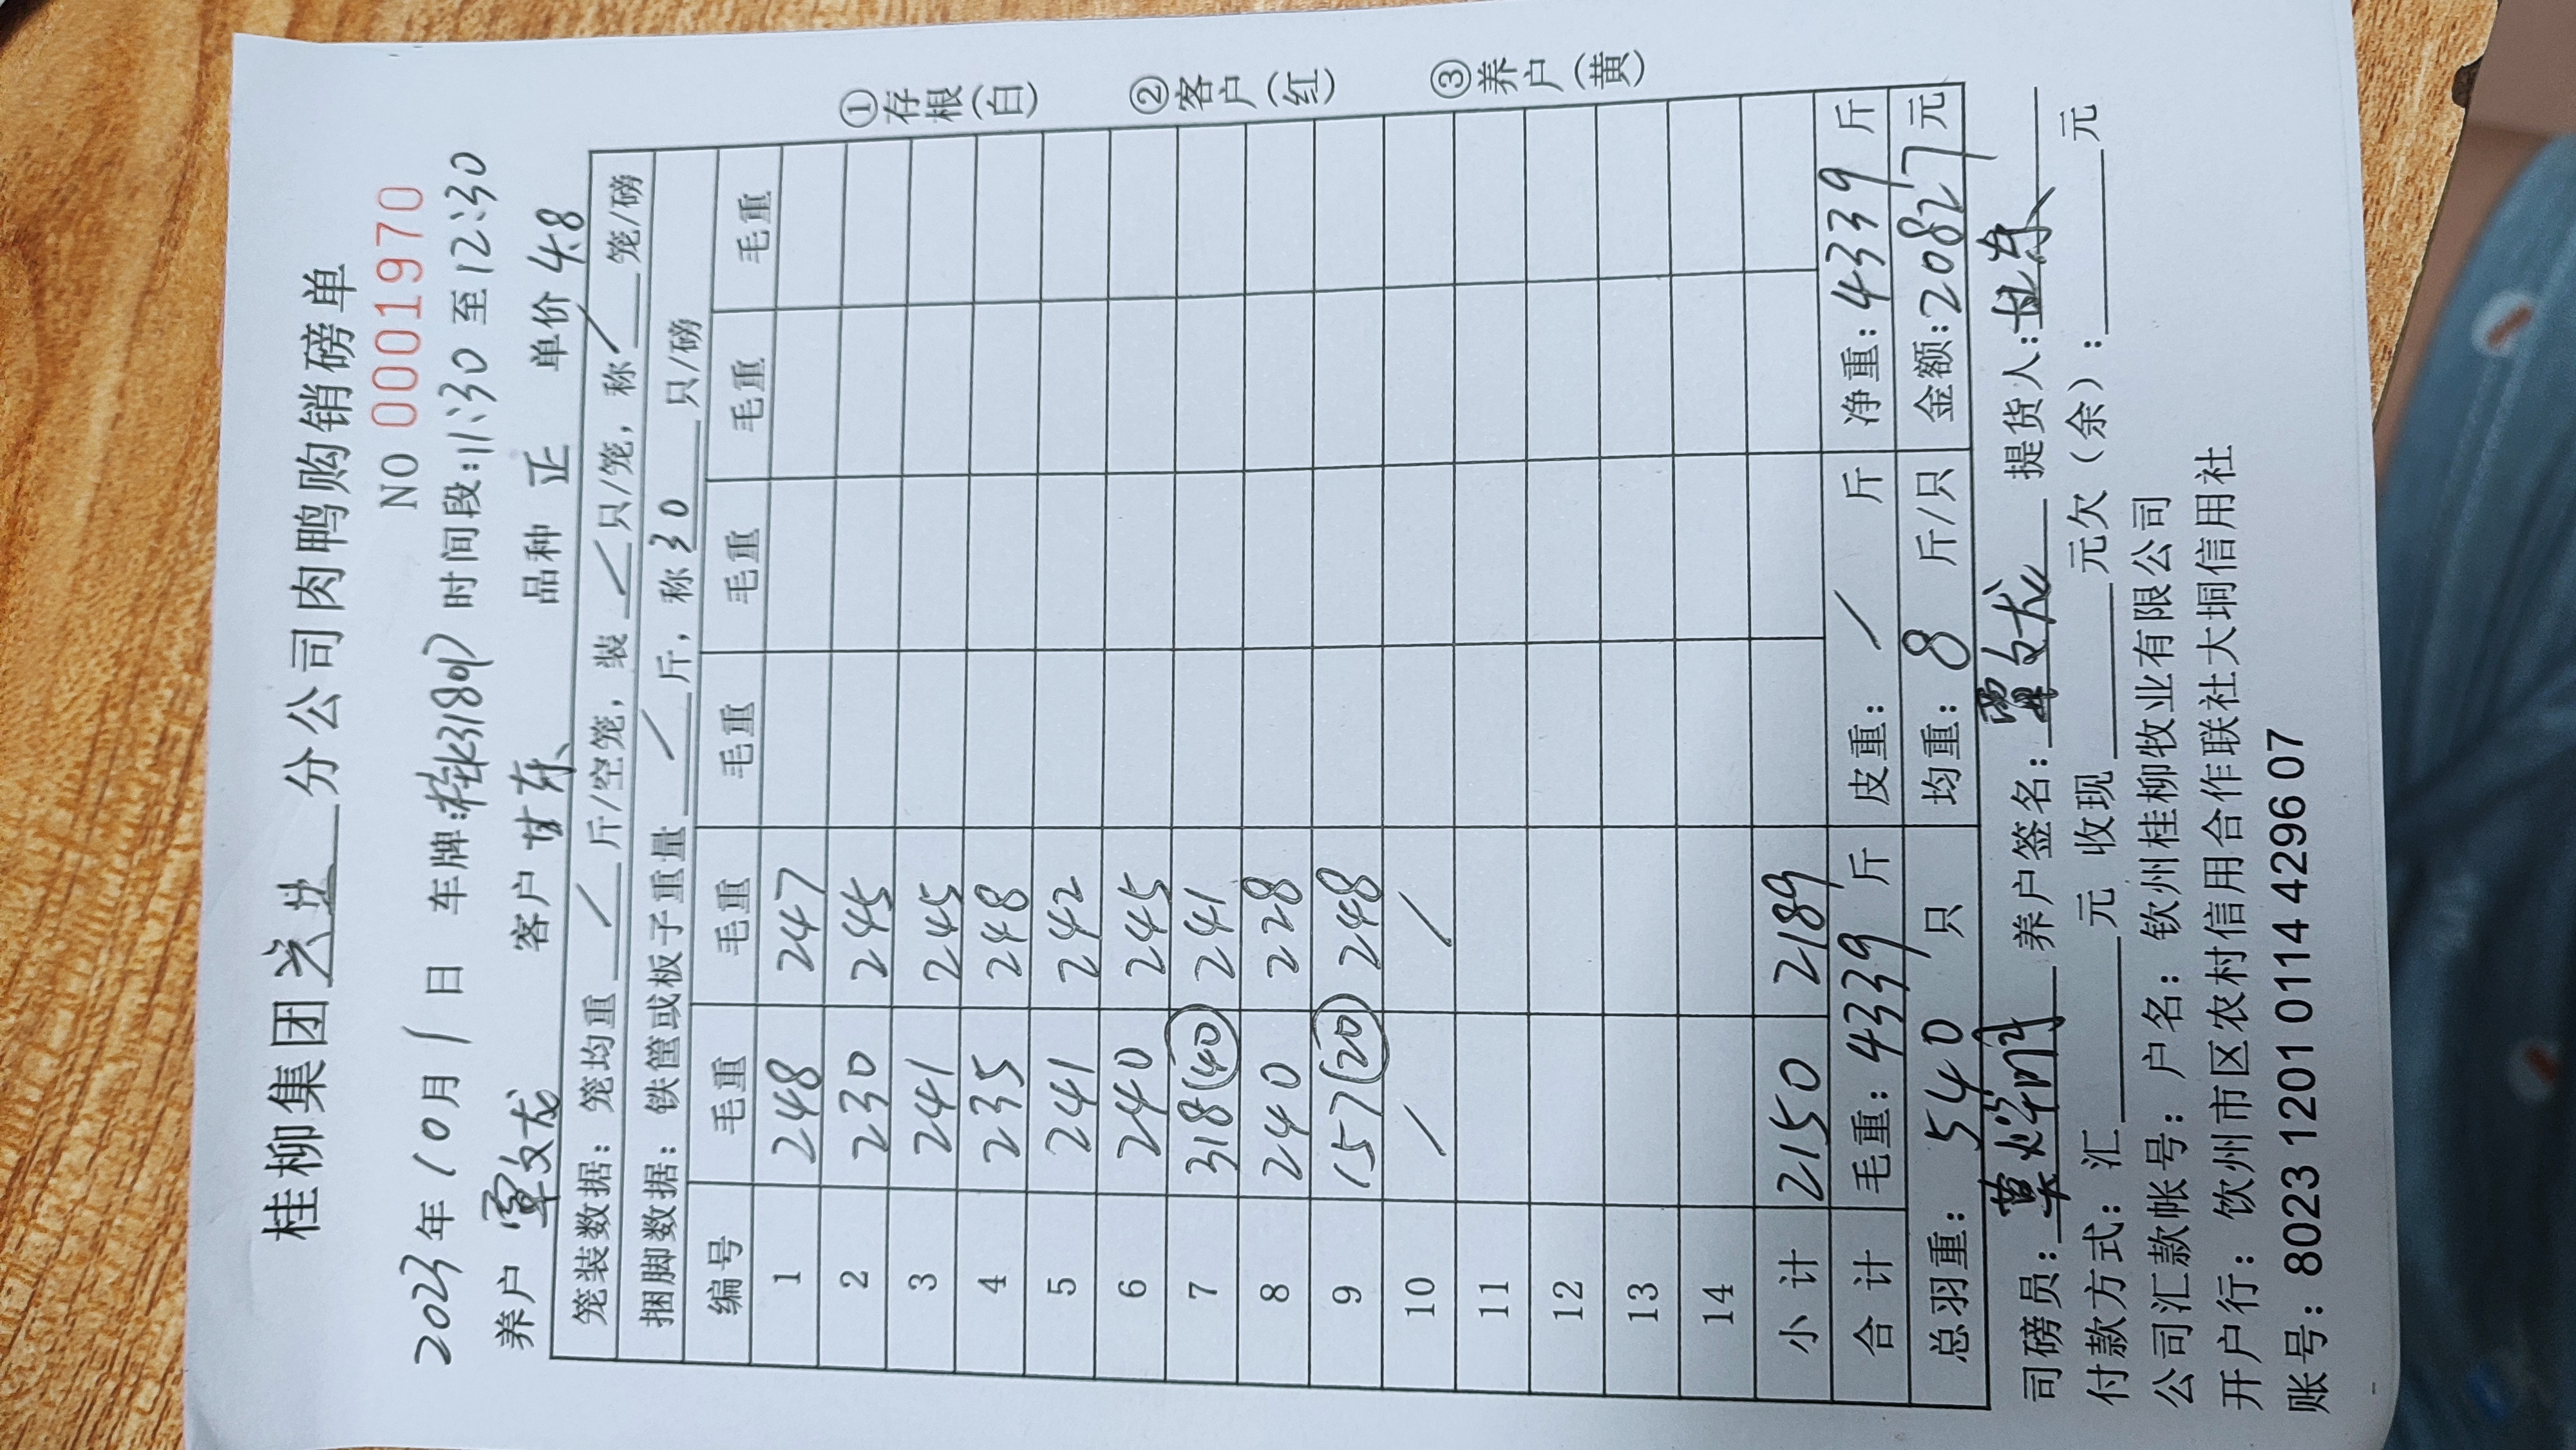 桂柳集团 分公司肉鸭购销磅单
NO 0001970
2023年10月1日 车牌: 时间段:11:30至12:30
养户 覃文龙 客户 甘东 品种 正 单价 4.8
笼装数据: 笼均重 / 斤/空笼, 装 / 只/笼, 称 / 笼/磅
捆脚数据: 铁筐或板子重量 / 斤, 称 30 只/磅
编号 毛重 毛重 毛重 毛重 毛重 毛重
1 248 247
2 230 245
3 241 245
4 235 248
5 241 242
6 240 245
7 318(40) 241
8 240 228
9 157(20) 248
10 / /
11
12
13
14
小计 2150 2189
合计 毛重: 4339 斤 皮重: / 斤 净重: 4339 斤
总羽重: 540 只 均重: 8 斤/只 金额: 20827元
司磅员: 养户签名: 覃文龙 提货人: 甘东
付款方式: 汇 元 收现 元欠(余): 元
公司汇款帐号: 户名: 钦州桂柳牧业有限公司
开户行: 饮州市区农村信用合作联社大垌信用社
账号: 8023 1201 0114 4296 07
①存根(白) ②客户(红) ③养户(黄)